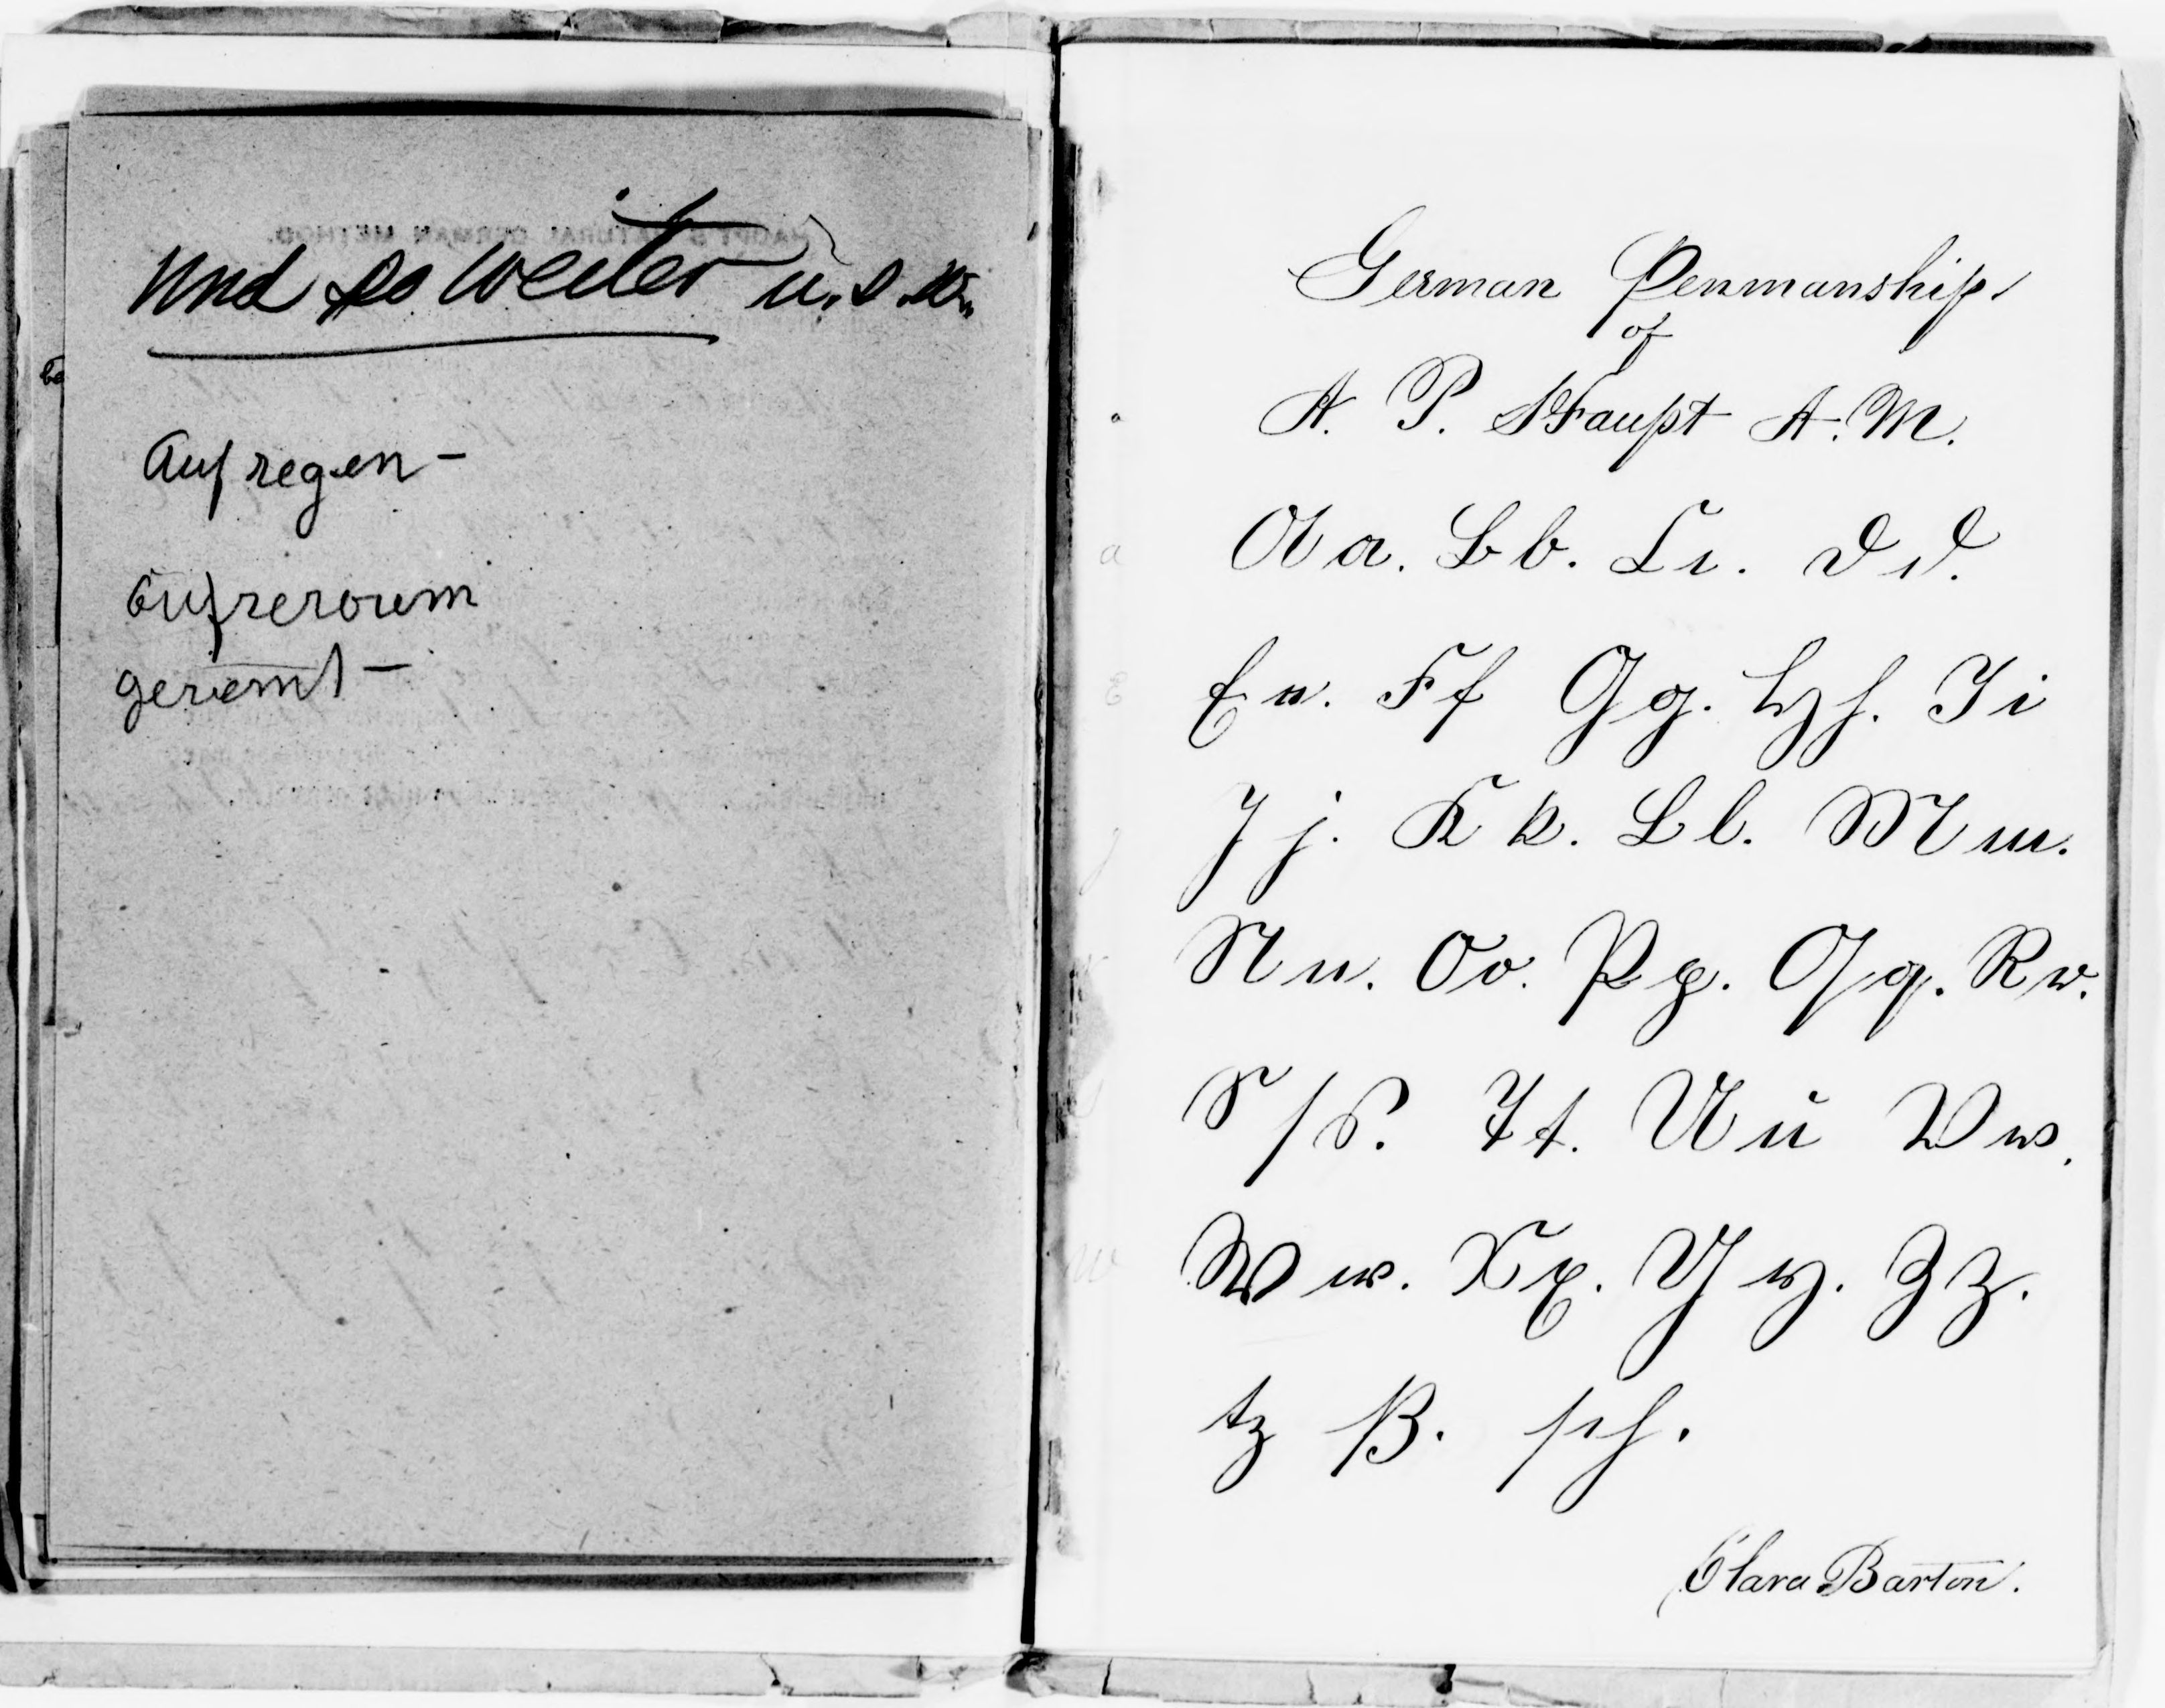 und so weiter u.s.w.
Aufregen—
German Penmanship
of
A. P. Haupt A.M.
A a. B b. C c. D d.
E e. F f G g. H h. I i
J j. K k. L l. M m.
N n. O o. P p. Q q. R r.
S ſ s. T t. U u V v.
W w. X x. Y y. Z z.
tz ß. sch.
Clara Barton.